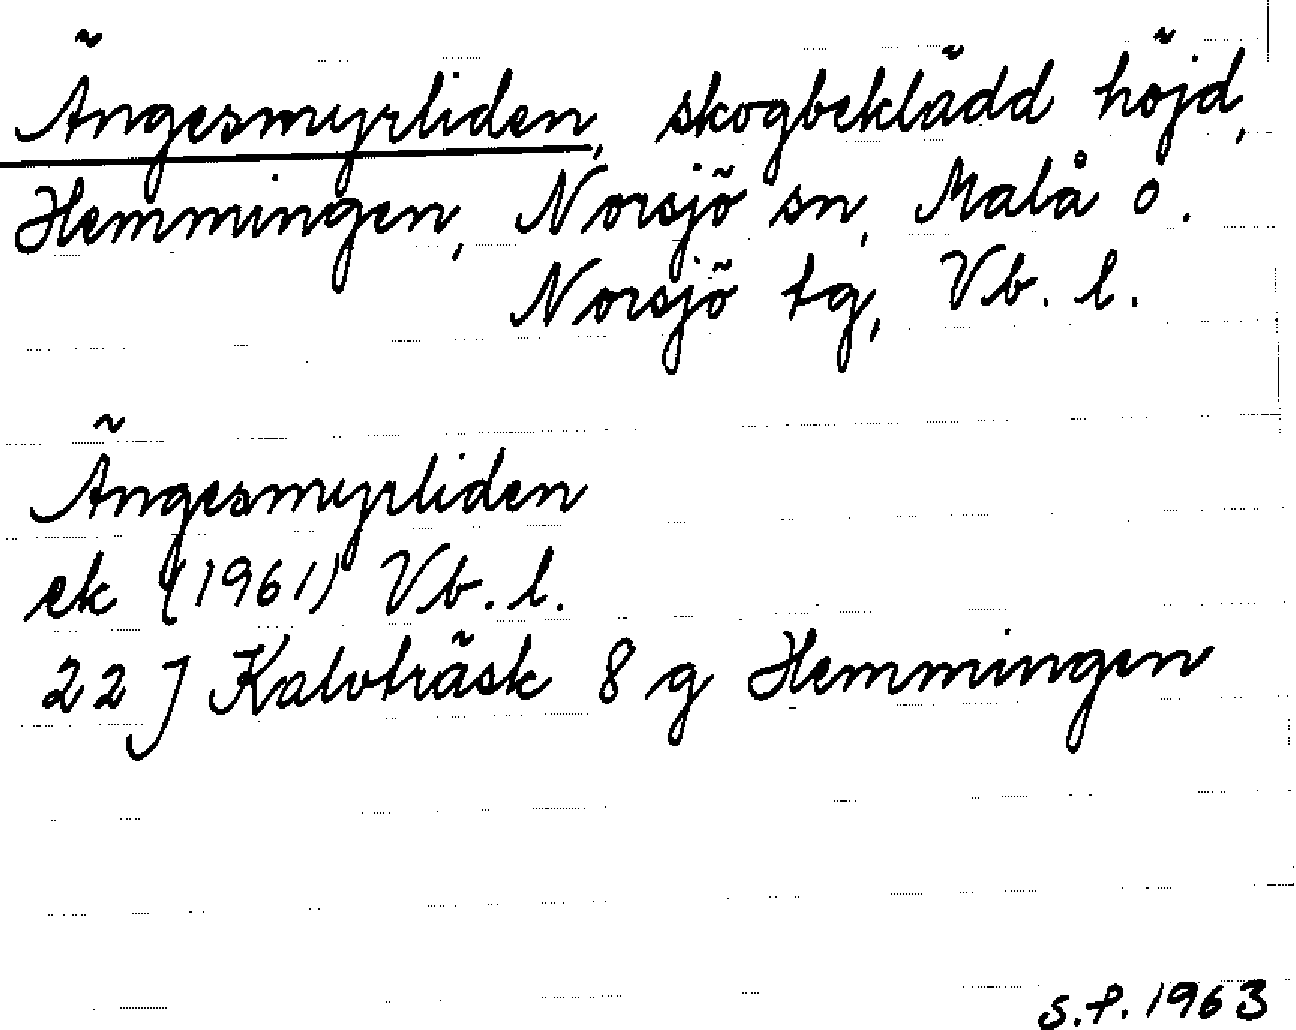 Ängesmyrliden, skogbeklädd höjd,
Hemmingen, Norsjö sn, Malå o.
Norsjö tg, Vb. l.
Ängesmyrliden
ek (1961) Vb. l.
22 J Kalvträsk 8 g Hemmingen
S.P. 1963